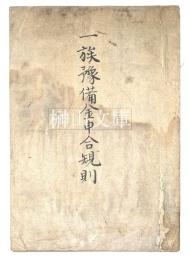 一族豫備金申合規則
榊山文庫